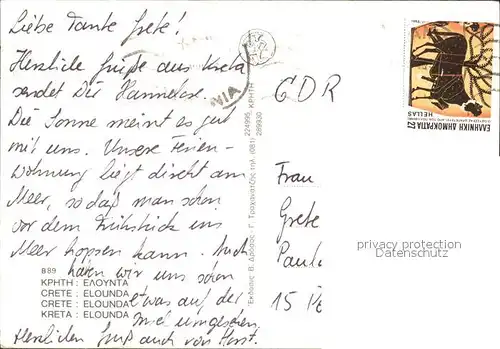 Liebe Tante Grete!
Herzliche Grüße aus Kreta
sendet Dir Hannelore.
Die Sonne meint es gut
mit uns. Unsere Ferien-
wohnung liegt direkt am
Meer, so daß man schon
vor dem Frühstück ins
Meer hopsen kann. Auch
haben wir uns schon
etwas auf der
Insel umgesehen.
Herzlichen Gruß auch von Horst.
B 89
ΚΡΗΤΗ : ΕΛΟΥΝΤΑ
CRETE : ELOUNDA
CRETE : ELOUNDA
KRETA : ELOUNDA
224995, ΚΡΗΤΗ
289930
ΕΛΛΗΝΙΚΗ ΔΗΜΟΚΡΑΤΙΑ 27
HELLAS
GDR
Frau
Grete
15
privacy protection
Datenschutz